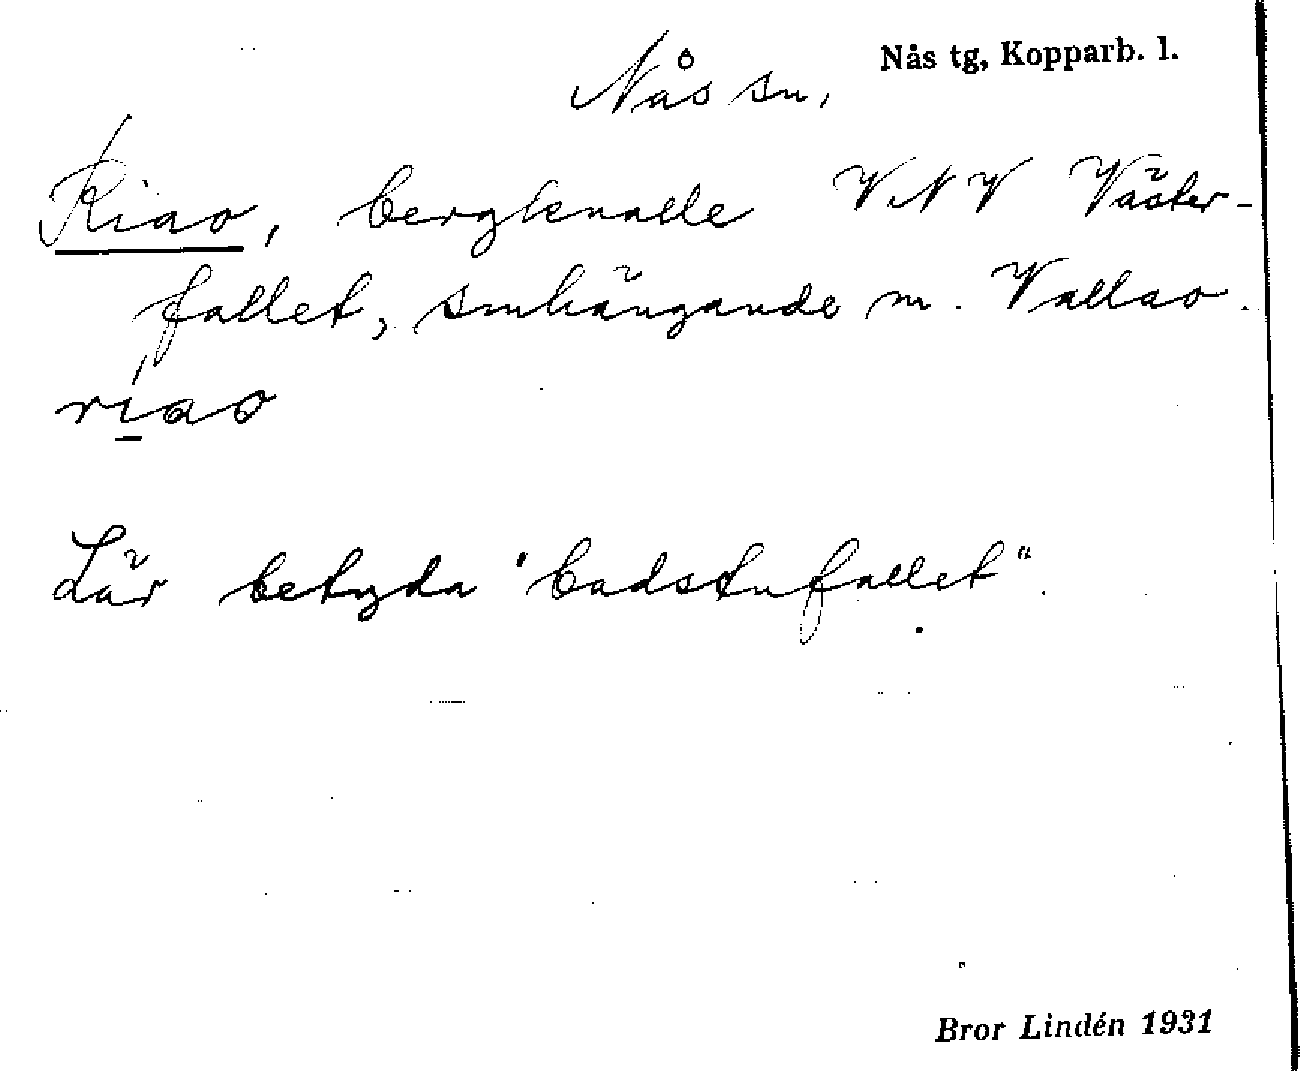 Nås tg, Kopparb. l.
Nås sn,
Riao, bergknalle VNV Väster-
fallet, smhängande m. Vallao.
ríao
Lär betyda "badstufallet".
Bror Lindén 1931